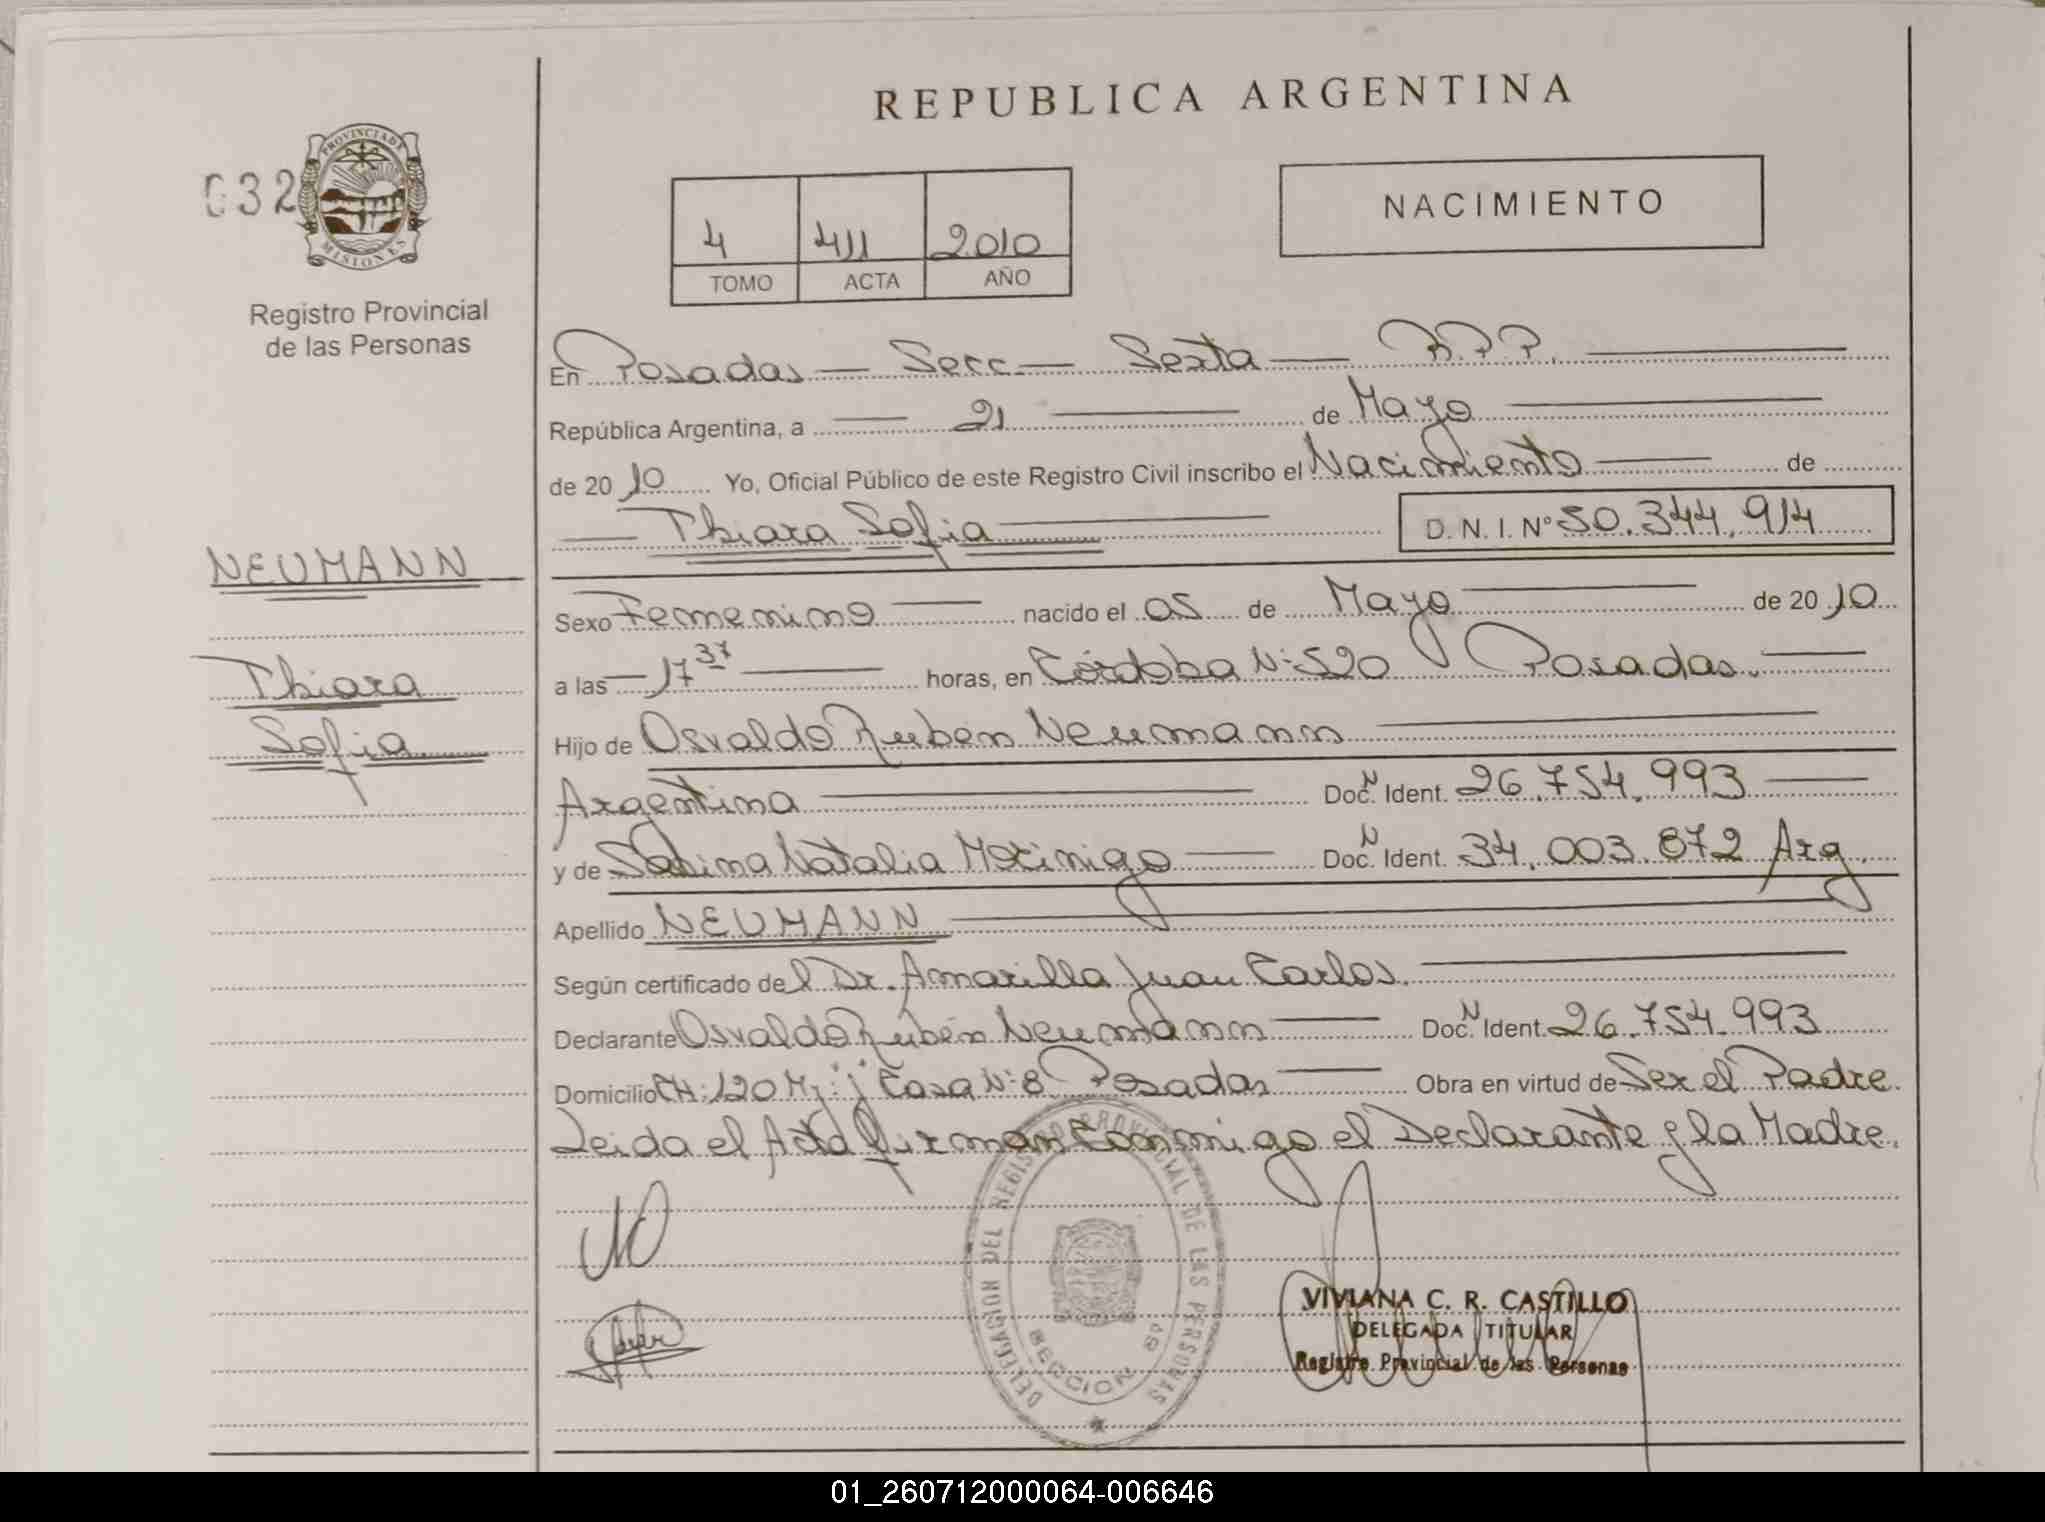 REPUBLICA ARGENTINA
032
PROVINCIA DE
MISIONES
Registro Provincial
de las Personas
4 411 2010
TOMO ACTA AÑO
NACIMIENTO
En Posadas — Secc. — Sexta — R.P.P.
República Argentina, a 21 de Mayo
de 2010 Yo, Oficial Público de este Registro Civil inscribo el Nacimiento de
Thiara Sofia D. N. I. N° 50.344.914
NEUMANN
Thiara
Sofia
Sexo Femenino nacido el 05 de Mayo de 2010
a las 17 37 horas, en Córdoba N° 520 Posadas.
Hijo de Osvaldo Rubén Neumann
Argentina Doc. N Ident. 26.754.993
y de Sabina Natalia Morinigo Doc. N Ident. 34.003.872 Arg.
Apellido NEUMANN
Según certificado del Dr. Amarilla Juan Carlos.
Declarante Osvaldo Rubén Neumann Doc. N Ident. 26.754.993
Domicilio CH: 120 Mz: j Casa N° 8 Posadas Obra en virtud de Ser el Padre
Leida el Acta firman Conmigo el Declarante y la Madre.
DELEGACION DEL REGISTRO PROVINCIAL DE LAS PERSONAS
SECCION 6a
VIVIANA C. R. CASTILLO
DELEGADA TITULAR
Registro Provincial de las Personas
01_260712000064-006646